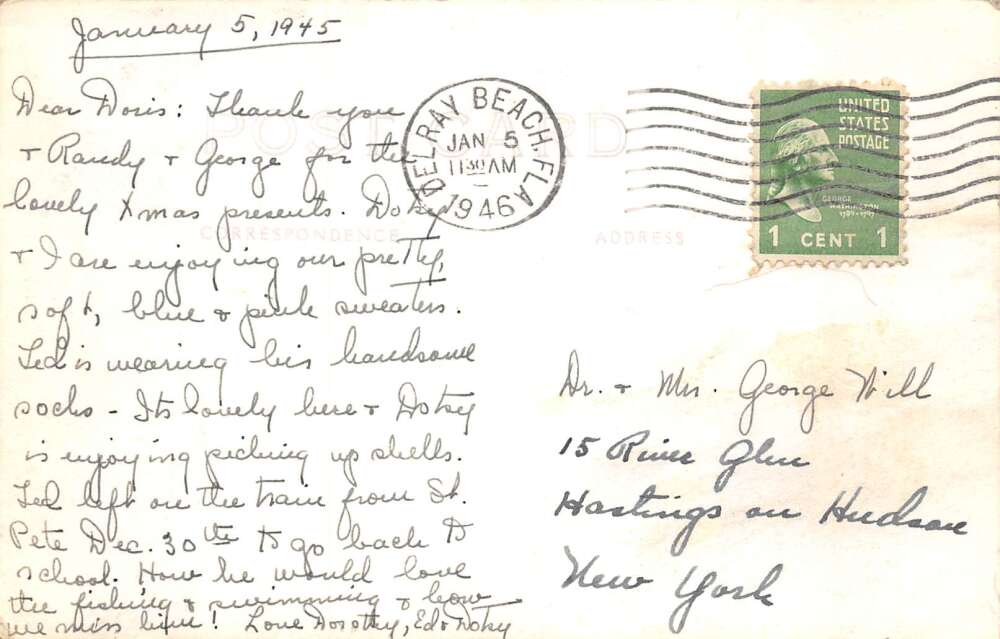 January 5, 1945
Dear Doris: Thank you
+ Randy + George for the
lovely Xmas presents. Dotsy
+ I are enjoying our pretty,
soft, blue + pink sweaters.
Ted is wearing his handsome
socks - Its lovely here + Dotsy
is enjoying picking up shells.
Ted left on the train from St.
Pete Dec. 30th to go back to
school. How he would love
the fishing + swimming + how
we miss him! Love Dorothy, Ed + Dotsy
POST CARD
CORRESPONDENCE
ADDRESS
DELRAY BEACH. FLA
JAN 5
11 30 AM
1946
UNITED
STATES
POSTAGE
GEORGE
WASHINGTON
1789-1797
1 CENT 1
Dr. + Mrs. George Will
15 River Glen
Hastings on Hudson
New York